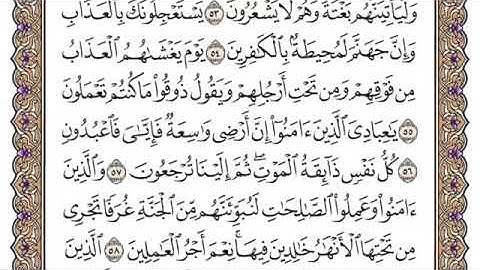 وَلَيَأْتِيَنَّهُم بَغْتَةً وَهُمْ لَا يَشْعُرُونَ ٥٣ يَسْتَعْجِلُونَكَ بِالْعَذَابِ
وَإِنَّ جَهَنَّمَ لَمُحِيطَةٌ بِالْكَافِرِينَ ٥٤ يَوْمَ يَغْشَاهُمُ الْعَذَابُ
مِن فَوْقِهِمْ وَمِن تَحْتِ أَرْجُلِهِمْ وَيَقُولُ ذُوقُوا مَا كُنتُمْ تَعْمَلُونَ
٥٥ يَٰعِبَادِيَ الَّذِينَ ءَامَنُوا إِنَّ أَرْضِي وَٰسِعَةٌ فَإِيَّٰيَ فَاعْبُدُونِ
٥٦ كُلُّ نَفْسٍ ذَائِقَةُ الْمَوْتِ ۖ ثُمَّ إِلَيْنَا تُرْجَعُونَ ٥٧ وَالَّذِينَ
ءَامَنُوا وَعَمِلُوا الصَّٰلِحَٰتِ لَنُبَوِّئَنَّهُم مِّنَ الْجَنَّةِ غُرَفًا تَجْرِي
مِن تَحْتِهَا الْأَنْهَٰرُ خَٰلِدِينَ فِيهَا ۚ نِعْمَ أَجْرُ الْعَٰمِلِينَ ٥٨ الَّذِينَ